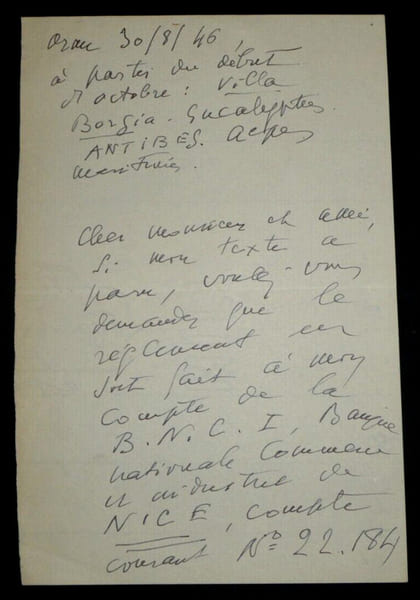 Oran 30/8/46,
à partir du début
d'octobre : Villa
Borgia. Eucalyptus.
ANTIBES. Alpes
maritimes.
Cher monsieur et ami,
Si mon texte a
paru, voulez-vous
demander que le
règlement en
soit fait à mon
compte de la
B.N.C.I, Banque
nationale Commerce
et industrie de
NICE, compte
courant No 22.184